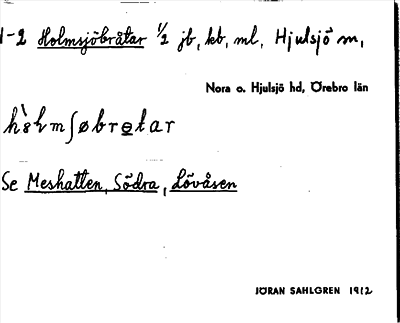 1-2 Holmsjöbråtar 1/2 jb, kb, ml, Hjulsjö sn,
Nora o. Hjulsjö hd, Örebro län
Se Meshatten, Södra, Lövåsen
JÖRAN SAHLGREN 1912